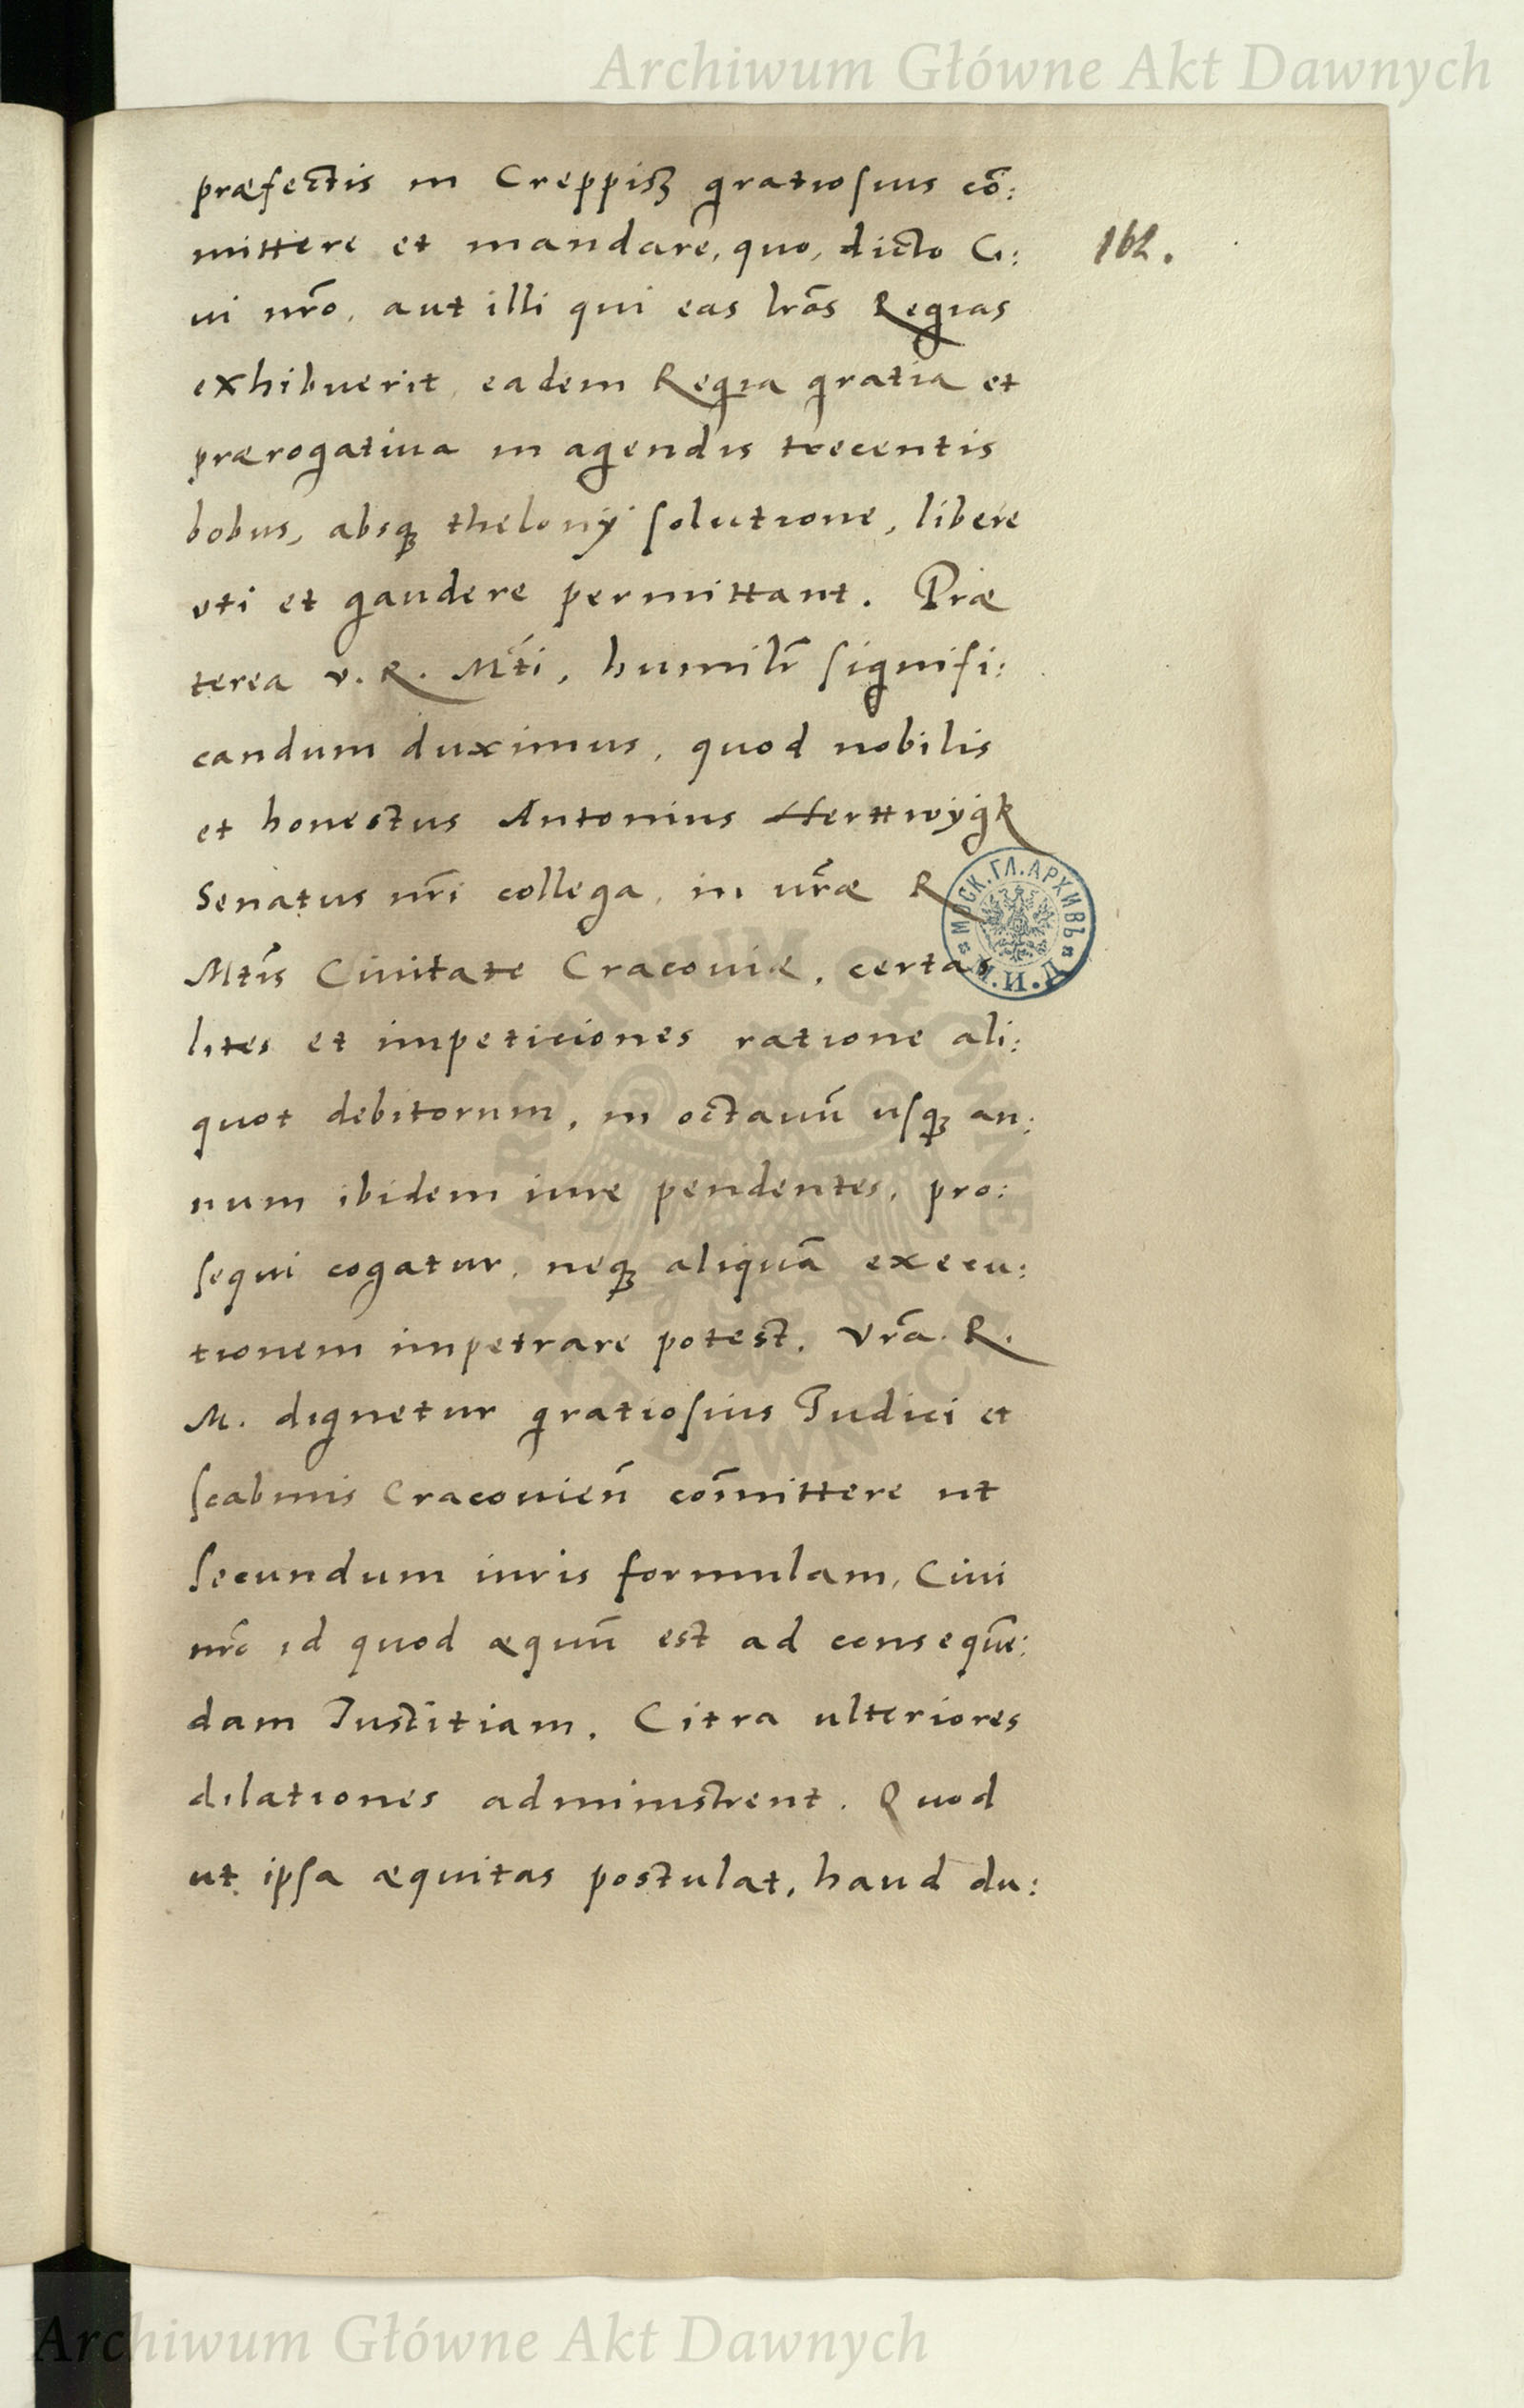 Archiwum Główne Akt Dawnych
præfectis in Creppisz gratiosius cõ:
mittere et mandare, quo, dicto Ci:
162.
ui nr̃o, aut illi qui eas lr̃as Regias
exhibuerit, eadem Regia gratia et
prærogatiua in agendis trecentis
bobus, absq̨ thelonÿ solutione, libere
vti et gaudere permittant. Præ
terea v. R. Mti, humilr̃ signifi:
candum duximus, quod nobilis
et honestus Antonius Herttwÿgk
Senatus nr̃i collega, in vr̃æ R
Mtis Ciuitate Cracouiæ, certas
lites et impeticiones ratione ali:
quot debitorum, in octauũ usq̨ an:
num ibidem iure pendentes, pro:
sequi cogatur, neq̨ aliquã execu:
tionem impetrare potest. Vr̃a. R.
M. dignetur gratiosius Iudici et
scabinis Cracouien̄ com̃ittere ut
secundum iuris formulam, Ciui
nr̃o id quod æquũ est ad consequẽ:
dam Iustitiam, Citra ulteriores
dilationes administrent. Quod
ut ipsa æquitas postulat, haud du:
МОСК. ГЛ. АРХИВЪ
М.И.Д.
ARCHIWUM GŁÓWNE
AKT DAWNYCH
Archiwum Główne Akt Dawnych